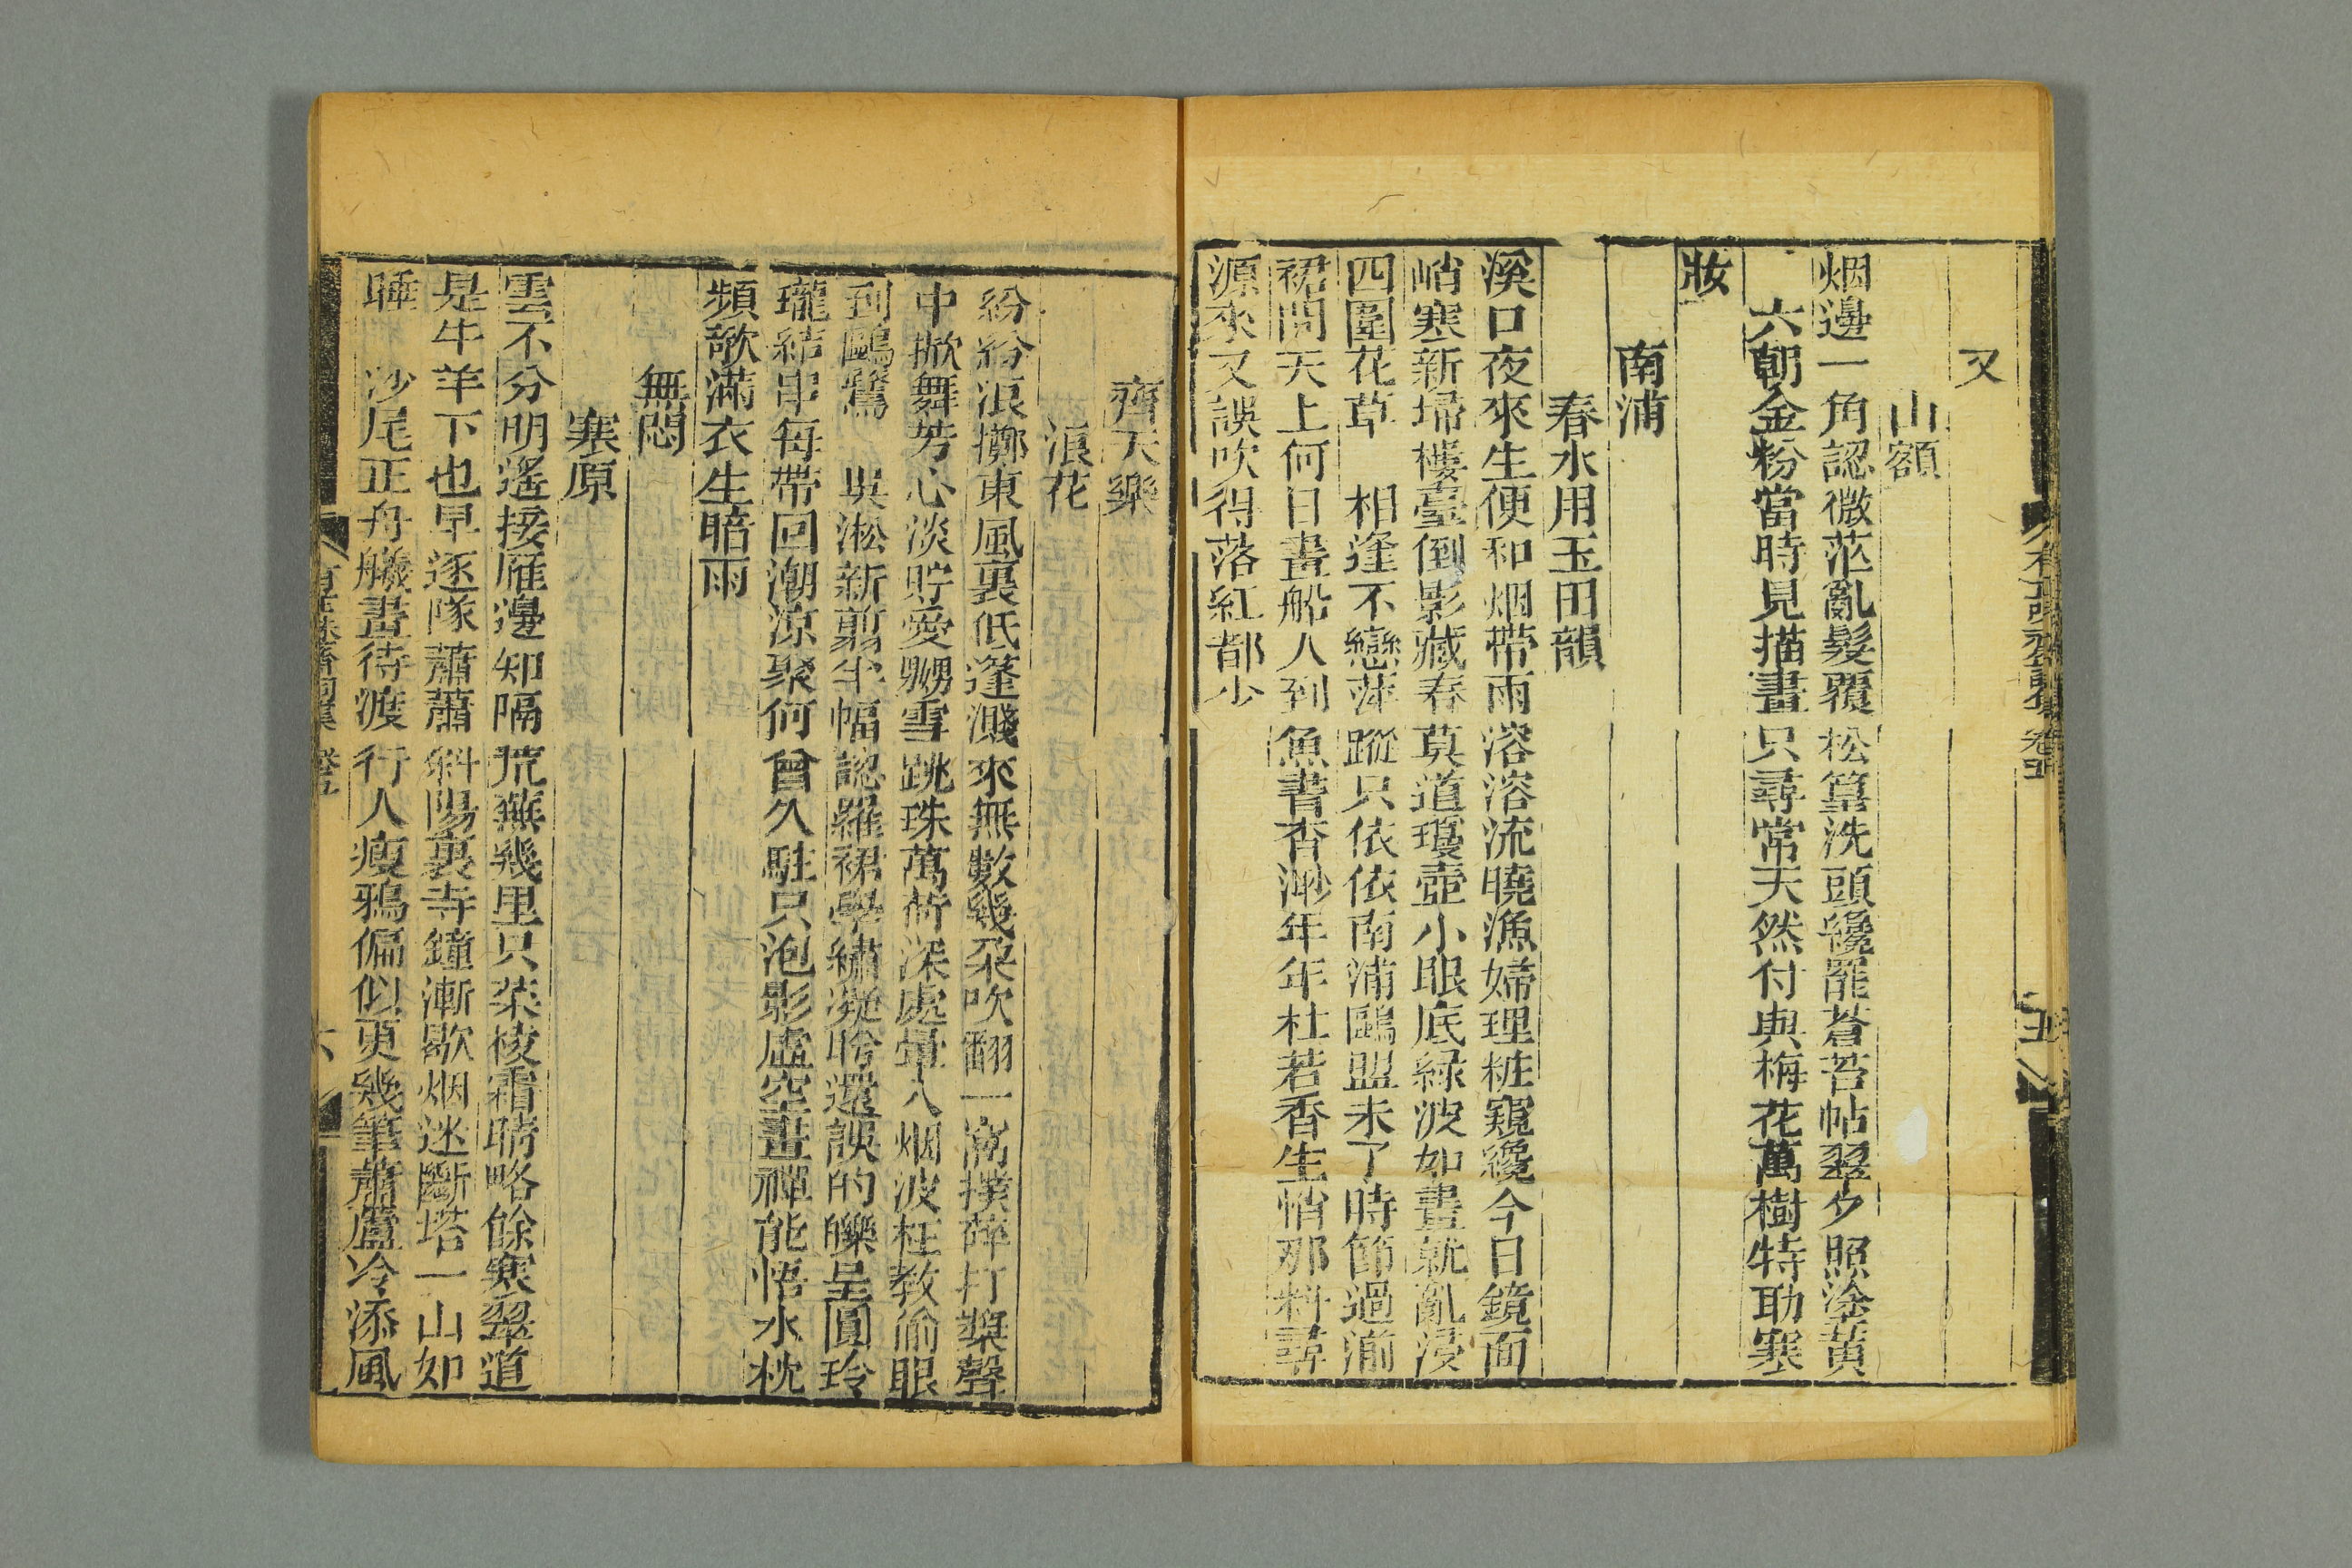 又
山額
烟邊一角認微茫亂髮覆松篁洗頭纔罷蒼苔帖翠夕照塗黃
六朝金粉當時見描畫只尋常天然付與梅花萬樹特助寒
妝
南浦
春水用玉田韻
溪口夜來生便和烟帶雨溶溶流曉漁婦理粧窺纔今日鏡面
峭寒新掃樓臺倒影藏春莫道瓊壺小眼底綠波如畫就亂浸
四圍花草　相逢不戀萍蹤只依依南浦鷗盟未了時節過湔
裙問天上何日畫船人到魚書杳渺年年杜若香生悄那料尋
源來又誤吹得落紅都少
齊天樂
浪花
紛紛浪擲東風裏低篷濺來無數幾朶吹翻一窩撲碎打槳聲
中掀舞芳心淡貯愛嬲雪跳珠萬荷深處暈入烟波枉教偷眼
到鷗鷺　吳淞新翦半幅認羅裙學繡凝盼還誤的皪呈圓玲
瓏結串每帶回潮涼聚何曾久駐只泡影虛空畫禪能悟水枕
頻欹滿衣生暗雨
無悶
寒原
雲不分明遙接雁邊知隔荒蕪幾里只菜棱霜晴略餘寒翠道
是牛羊下也早逐隊蕭蕭斜陽裏寺鐘漸歇烟迷斷塔一山如
睡　沙尾正舟艤畫待渡行人瘦鴉偏似更幾筆蕭蘆冷添風
六